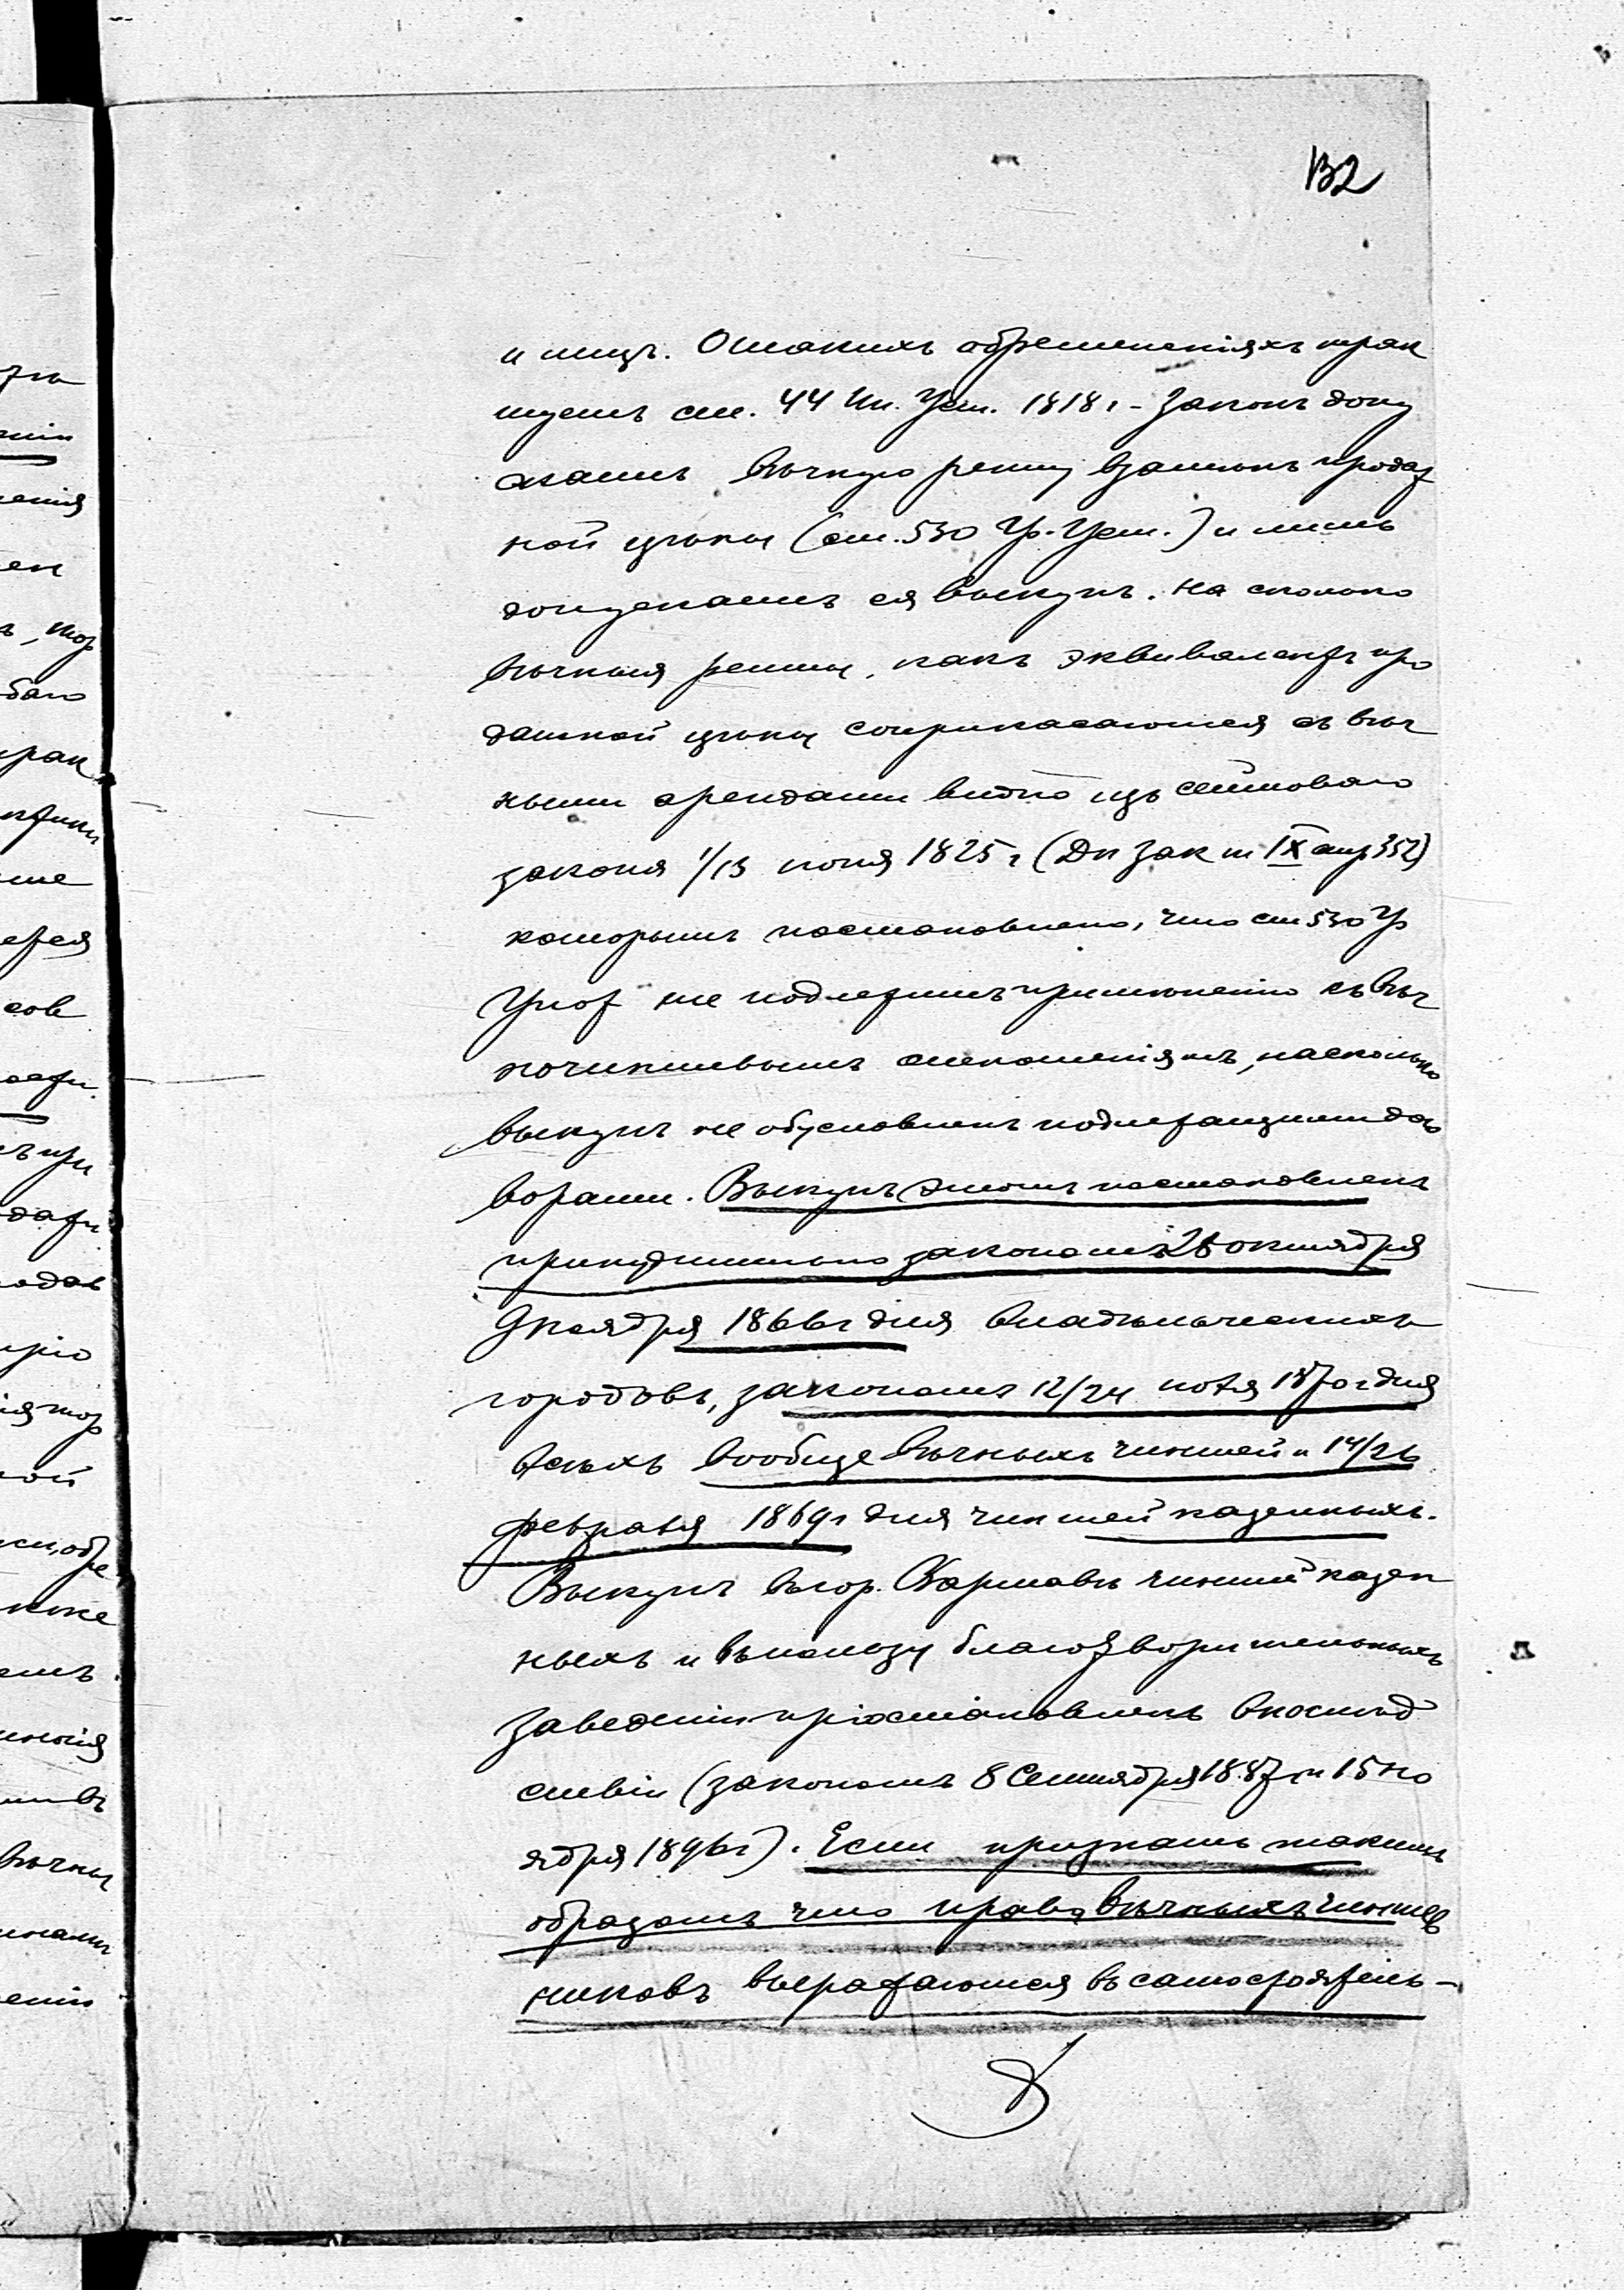 132
и лицъ. О такихъ обремененіяхъ трак
туетъ ст. 44 Ип. Уст. 1818 г - Законъ допу
скаетъ вѣчную ренту взамѣнъ продаж
ной цѣны (ст. 530 Гр. Улож.) и лишь
допускаетъ ея выкупъ. На сколько
вѣчныя ренты, какъ эквивалентъ про
дажной цѣны соприкасаются съ вѣч
ными арендами видно изъ сеймоваго
закона 1/13 іюня 1825 г (Дн Зак т IX стр 352)
которымъ постановлено, что ст 530 Гр
Улож не подлежитъ примѣненію къ вѣч
ночиншевымъ отношеніямъ, насколько
выкупъ не обусловленъ подлежащими дого
ворами. Выкупъ этотъ постановленъ
принудительно закономъ 28 октября
9 ноября 1866 г для владѣльческихъ
городовъ, закономъ 12/24 ноля 1870 г для
всѣхъ вообще вѣчныхъ чиншей и 14/26
февраля 1869 г для чиншей казенныхъ.
Выкупъ въ гор. Варшавѣ чиншей казен
ныхъ и въ пользу благотворительныхъ
заведеній пріостановленъ впослѣд
ствіи (закономъ 8 Сентября 1887 г и 15 но
ября 1896 г). Если признать такимъ
образомъ что права вѣчныхъ чинше
никовъ выражаются въ самостоятель-